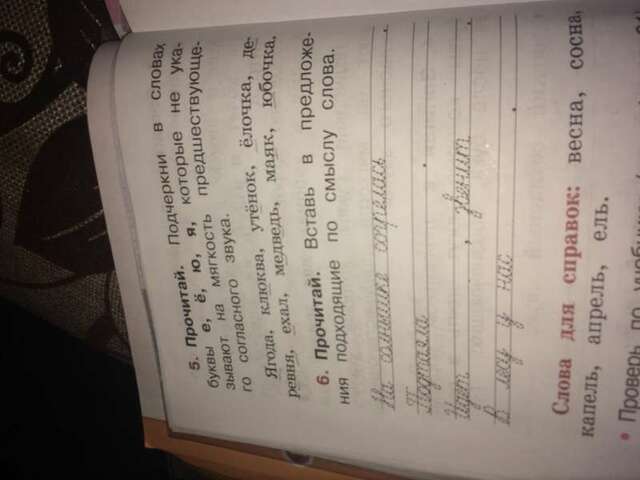 5. Прочитай. Подчеркни в словах
буквы е, ё, ю, я, которые не ука-
зывают на мягкость предшествующе-
го согласного звука.
Ягода, клюква, утёнок, ёлочка, де-
ревня, ехал, медведь, маяк, юбочка.
6. Прочитай. Вставь в предложе-
ния подходящие по смыслу слова.
На солнышке согрелась .
Поутала .
Идёт , звенит .
В лесу у нас .
Слова для справок: весна, сосна,
капель, апрель, ель.
• Проверь по